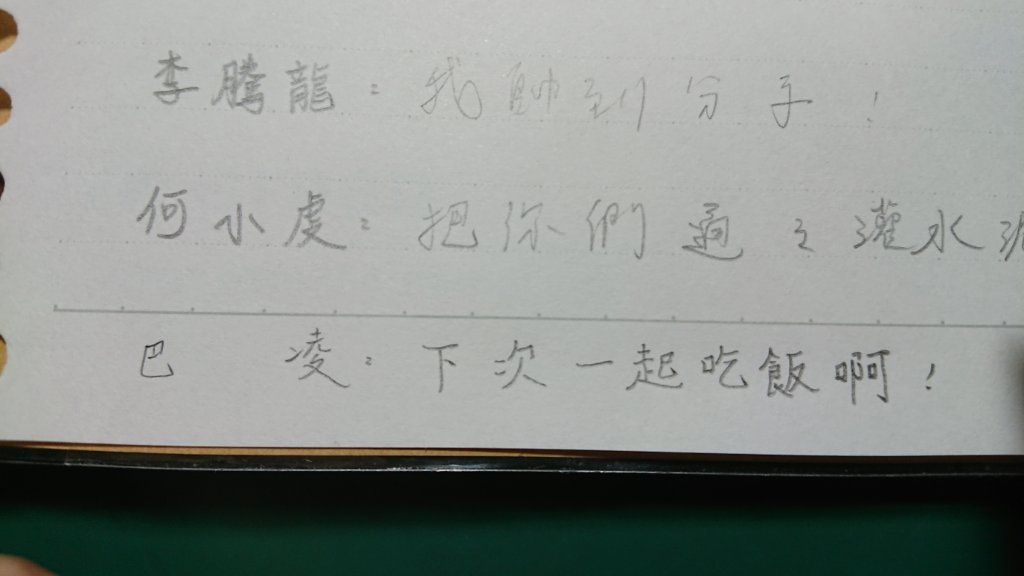 李騰龍：我帥到分子！
何小虔：把你們過之灌水泥
巴凌：下次一起吃飯啊！